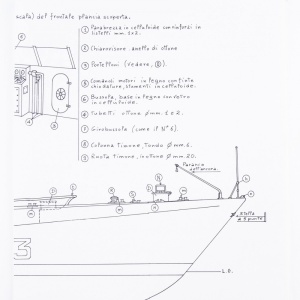 scala) del frontale plancia scoperta.
1 Parabrezza in celluloide con rinforzi in
listelli mm. 1x2.
2 Chiarovisore anello di ottone
3 Portelloni (vedere, B).
5 Comandi motori in legno con finte
chiodature, strumenti in celluloide.
6 Bussola, base in legno con vetro
in celluloide.
Tubetti ottone ø mm. 1 x 2.
Girobussola (come il N° 6).
Colonna Timone, Tondo ø mm. 6.
Ruota Timone, in ottone ø mm. 20.
Paranco
dell'ancora
Stella
a 5 punte
L.G.
3